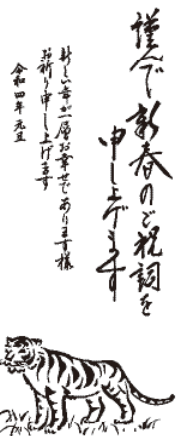 謹んで新春のご祝詞を
申し上げます
新しい年が一層お幸せであります様
お祈り申し上げます
令和四年元旦